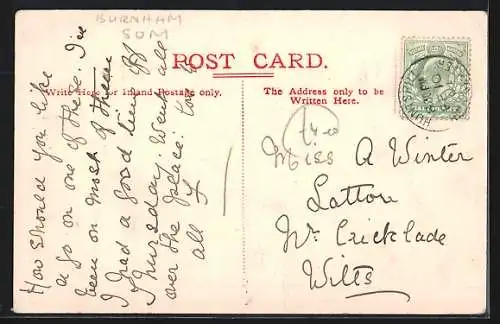 BURNHAM
SOM
POST CARD.
Write Here for Inland Postage only.
The Address only to be
Written Here.
How should you like
a go on one of these. I've
been on most of them
I had a good time of
Thursday. Went all
over the place. Love to
all
Miss A Winter
Latton
Nr. Cricklade
Wilts